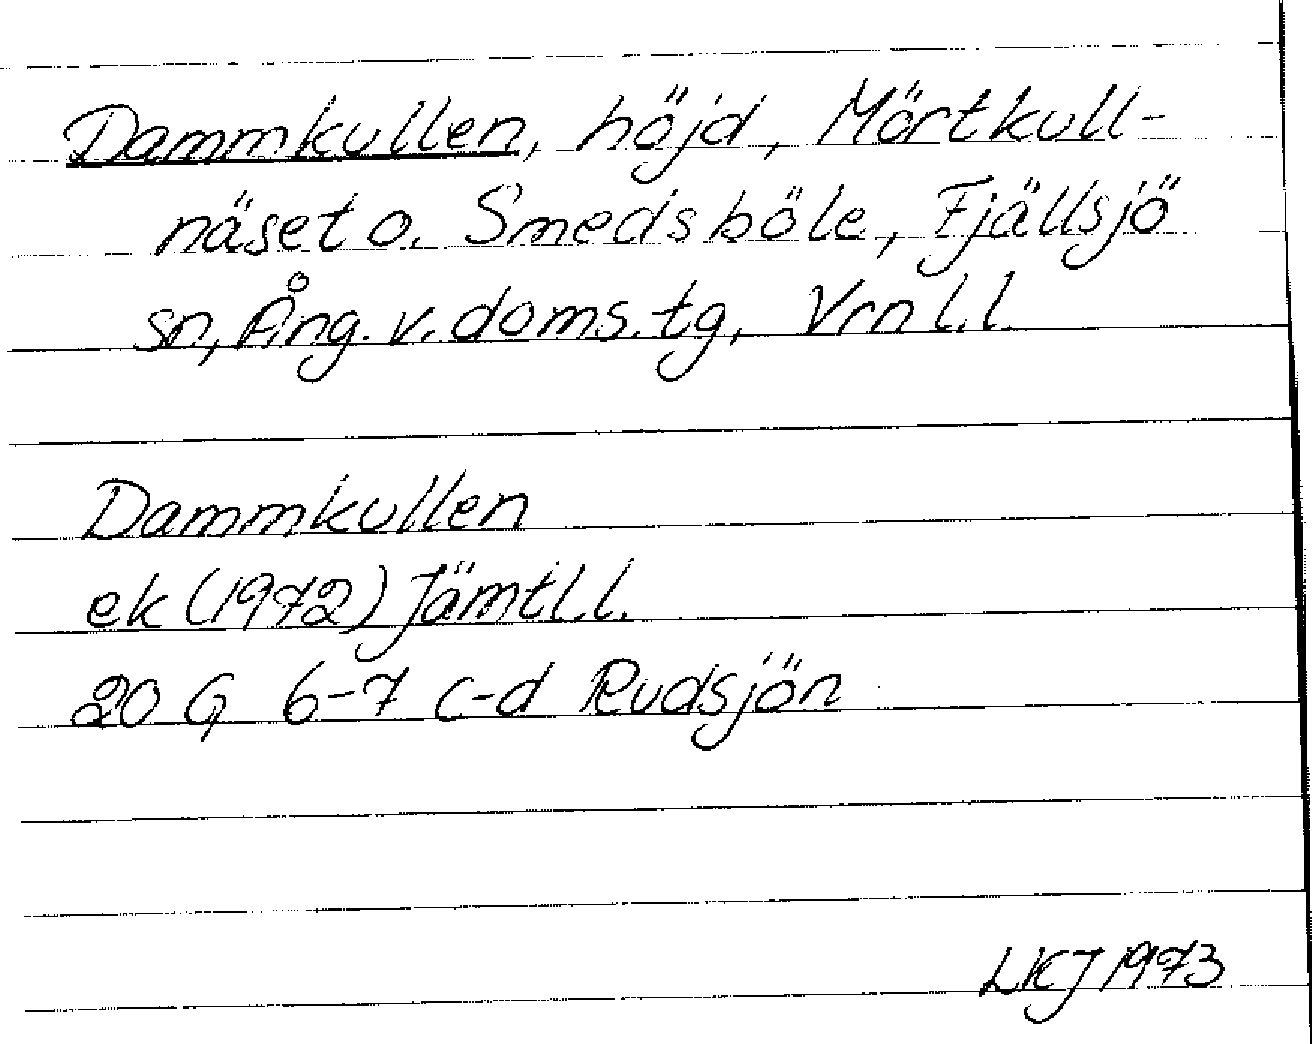 Dammkullen, höjd, Mörtkull-
näset o. Smedsböle, Fjällsjö
sn, Ång. v. doms. tg, Vrn l.l.
Dammkullen
ek (1972) Jämtl.l.
20 G 6-7 c-d Rudsjön
LKJ 1973